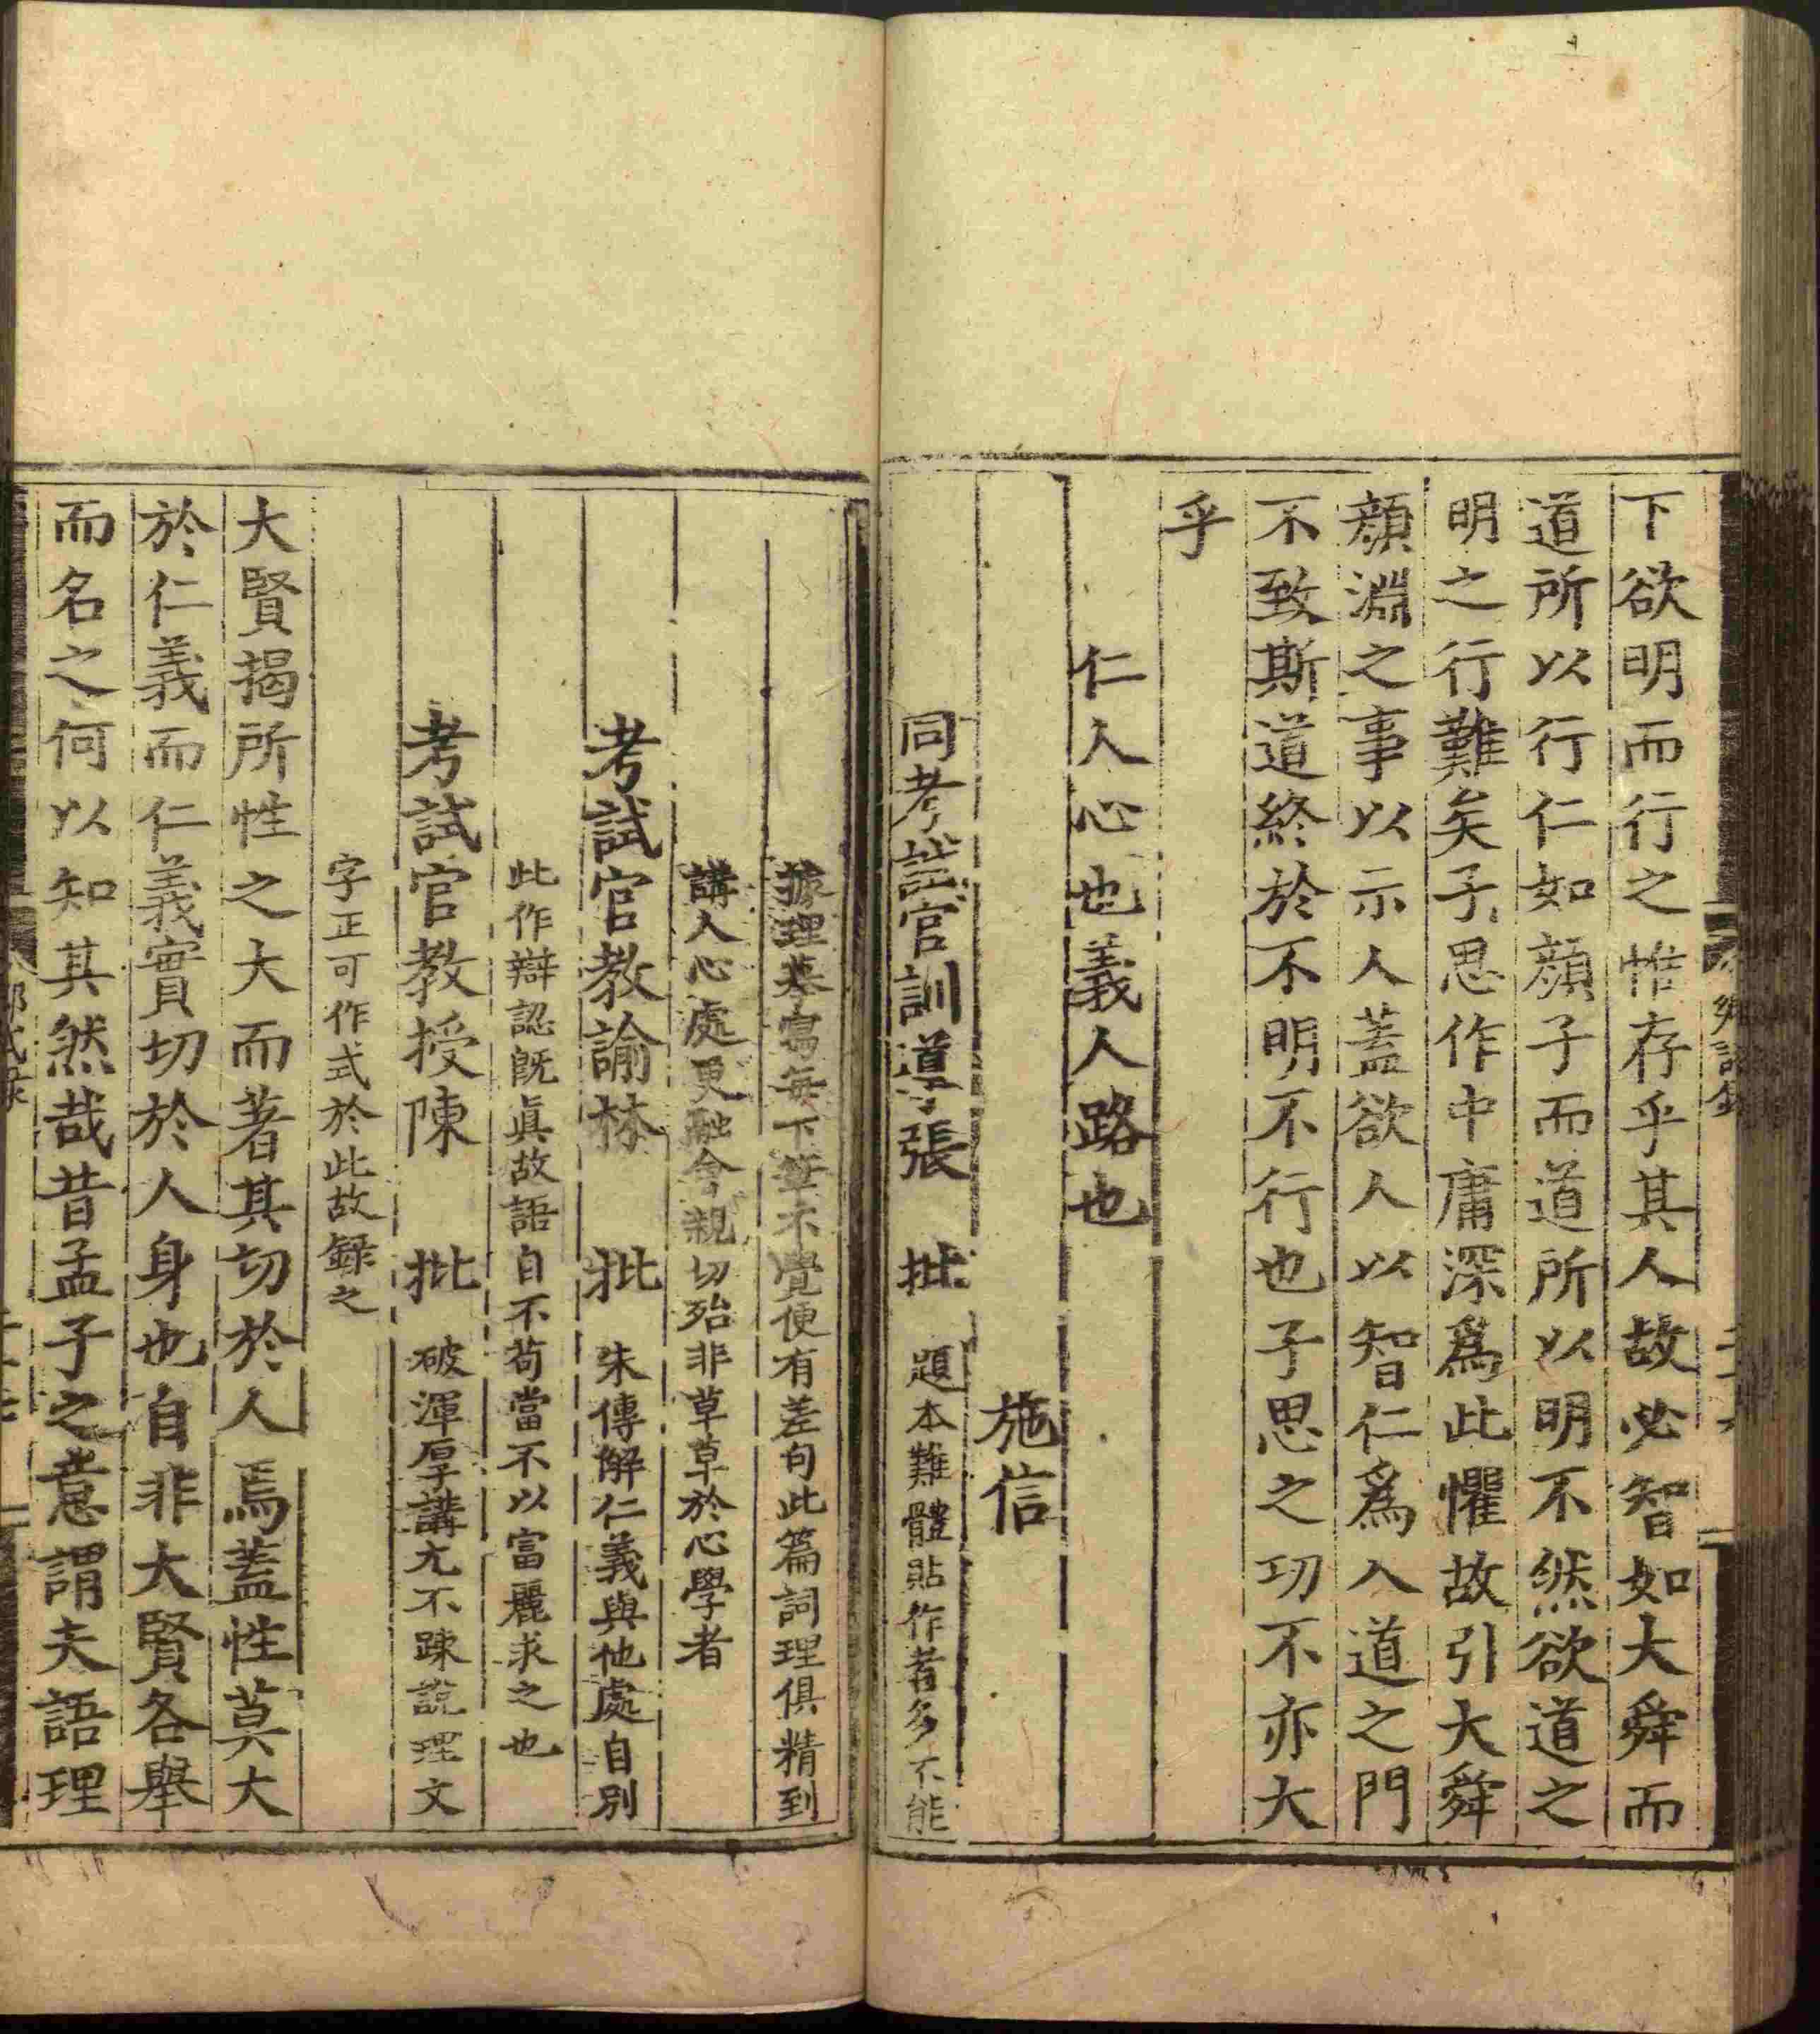 下欲明而行之惟存乎其人故必智如大舜而
道所以行仁如顔子而道所以明不然欲道之
明之行難矣子思作中庸深爲此懼故引大舜
顔淵之事以示人蓋欲人以智仁爲入道之門
不致斯道終於不明不行也子思之功不亦大
乎
仁人心也義人路也
施信
同考試官訓導張 批 題本難體貼作者多不能
據理摹寫每下筆不覺便有差句此篇詞理俱精到
講人心處更融會親切殆非草草於心學者
考試官教諭林 批 朱傳解仁義與他處自別
此作辯認旣眞故語自不苟當不以富麗求之也
考試官教授陳 批 破渾厚講尢不踈說理文
字正可作式於此故録之
大賢揭所性之大而著其切於人焉蓋性莫大
於仁義而仁義實切於人身也自非大賢各舉
而名之何以知其然哉昔孟子之意謂夫語理